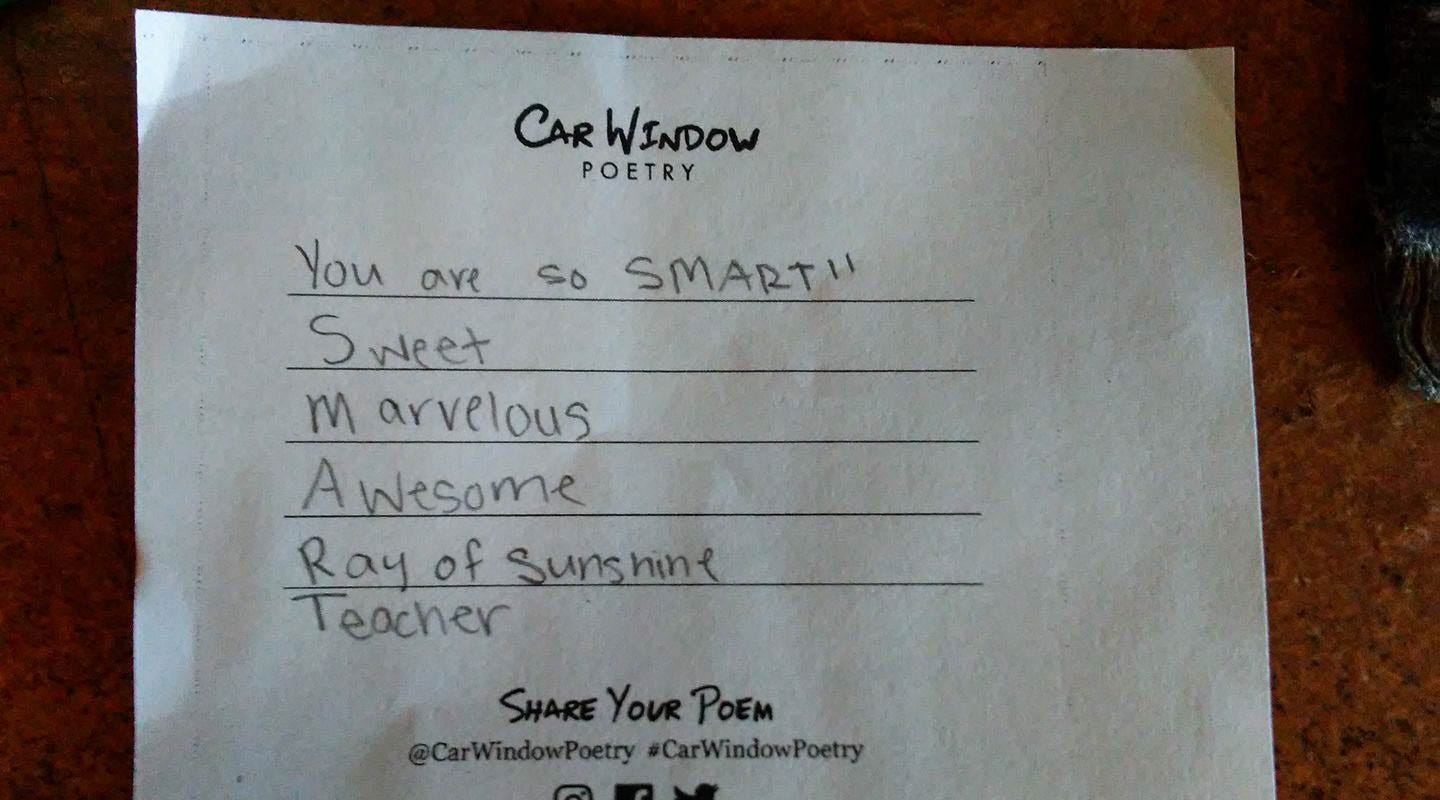 CAR WINDOW
POETRY
You are so SMART!!
Sweet
Marvelous
Awesome
Ray of Sunshine
Teacher
SHARE YOUR POEM
@CarWindowPoetry #CarWindowPoetry